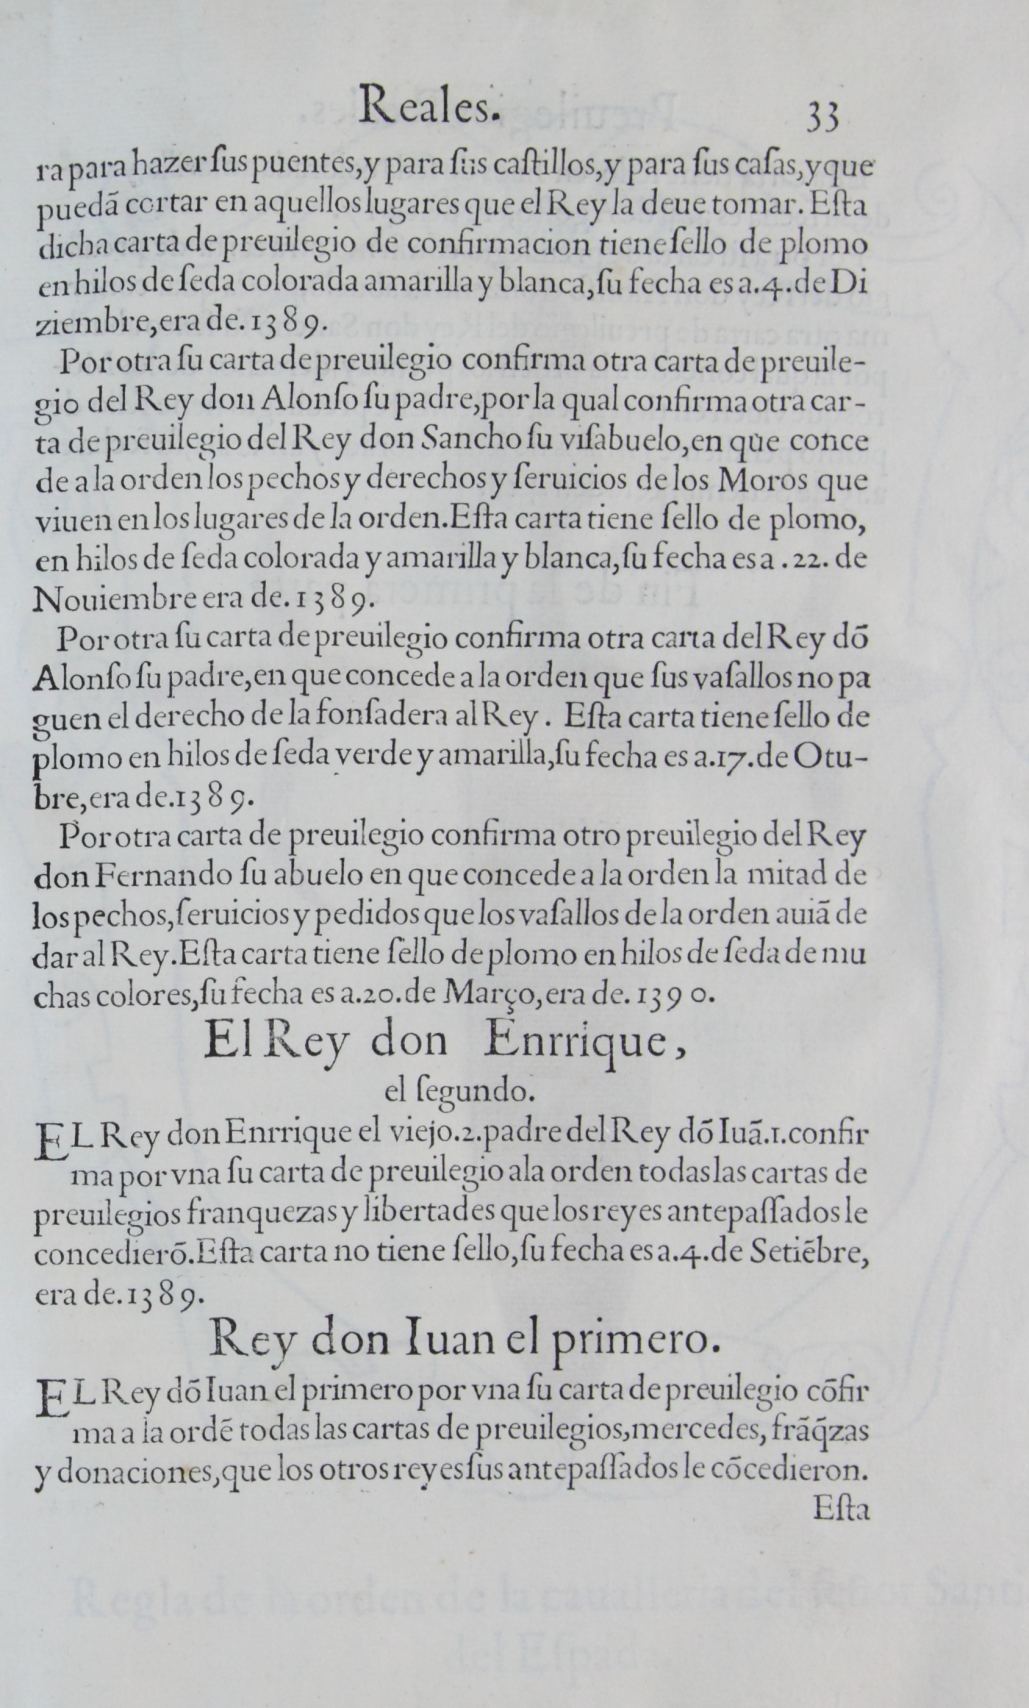 Reales. 33
ra para hazer ſus puentes,y para ſus caſtillos,y para ſus caſas,y que
puedā cortar en aquellos lugares que el Rey la deue tomar. Eſta
dicha carta de preuilegio de confirmacion tiene ſello de plomo
en hilos de ſeda colorada amarilla y blanca,ſu fecha es a.4.de Di
ziembre,era de.1389.
Por otra ſu carta de preuilegio confirma otra carta de preuile-
gio del Rey don Alonſo ſu padre,por la qual confirma otra car-
ta de preuilegio del Rey don Sancho ſu viſabuelo,en que conce
de a la orden los pechos y derechos y ſeruicios de los Moros que
viuen en los lugares de la orden.Eſta carta tiene ſello de plomo,
en hilos de ſeda colorada y amarilla y blanca,ſu fecha es a .22. de
Nouiembre era de.1389.
Por otra ſu carta de preuilegio confirma otra carta del Rey dō
Alonſo ſu padre,en que concede a la orden que ſus vaſallos no pa
guen el derecho de la fonſadera al Rey. Eſta carta tiene ſello de
plomo en hilos de ſeda verde y amarilla,ſu fecha es a.17.de Otu-
bre,era de.1389.
Por otra carta de preuilegio confirma otro preuilegio del Rey
don Fernando ſu abuelo en que concede a la orden la mitad de
los pechos,ſeruicios y pedidos que los vaſallos de la orden auiā de
dar al Rey.Eſta carta tiene ſello de plomo en hilos de ſeda de mu
chas colores,ſu fecha es a.20.de Março,era de.1390.
El Rey don Enrrique,
el ſegundo.
EL Rey don Enrrique el viejo.2.padre del Rey dō Iuā.1.confir
ma por vna ſu carta de preuilegio ala orden todas las cartas de
preuilegios franquezas y libertades que los reyes antepaſſados le
concedierō.Eſta carta no tiene ſello,ſu fecha es a.4.de Setiēbre,
era de.1389.
Rey don Iuan el primero.
EL Rey dō Iuan el primero por vna ſu carta de preuilegio cōfir
ma a la ordē todas las cartas de preuilegios,mercedes, frāq̄zas
y donaciones,que los otros reyes ſus antepaſſados le cōcedieron.
Eſta